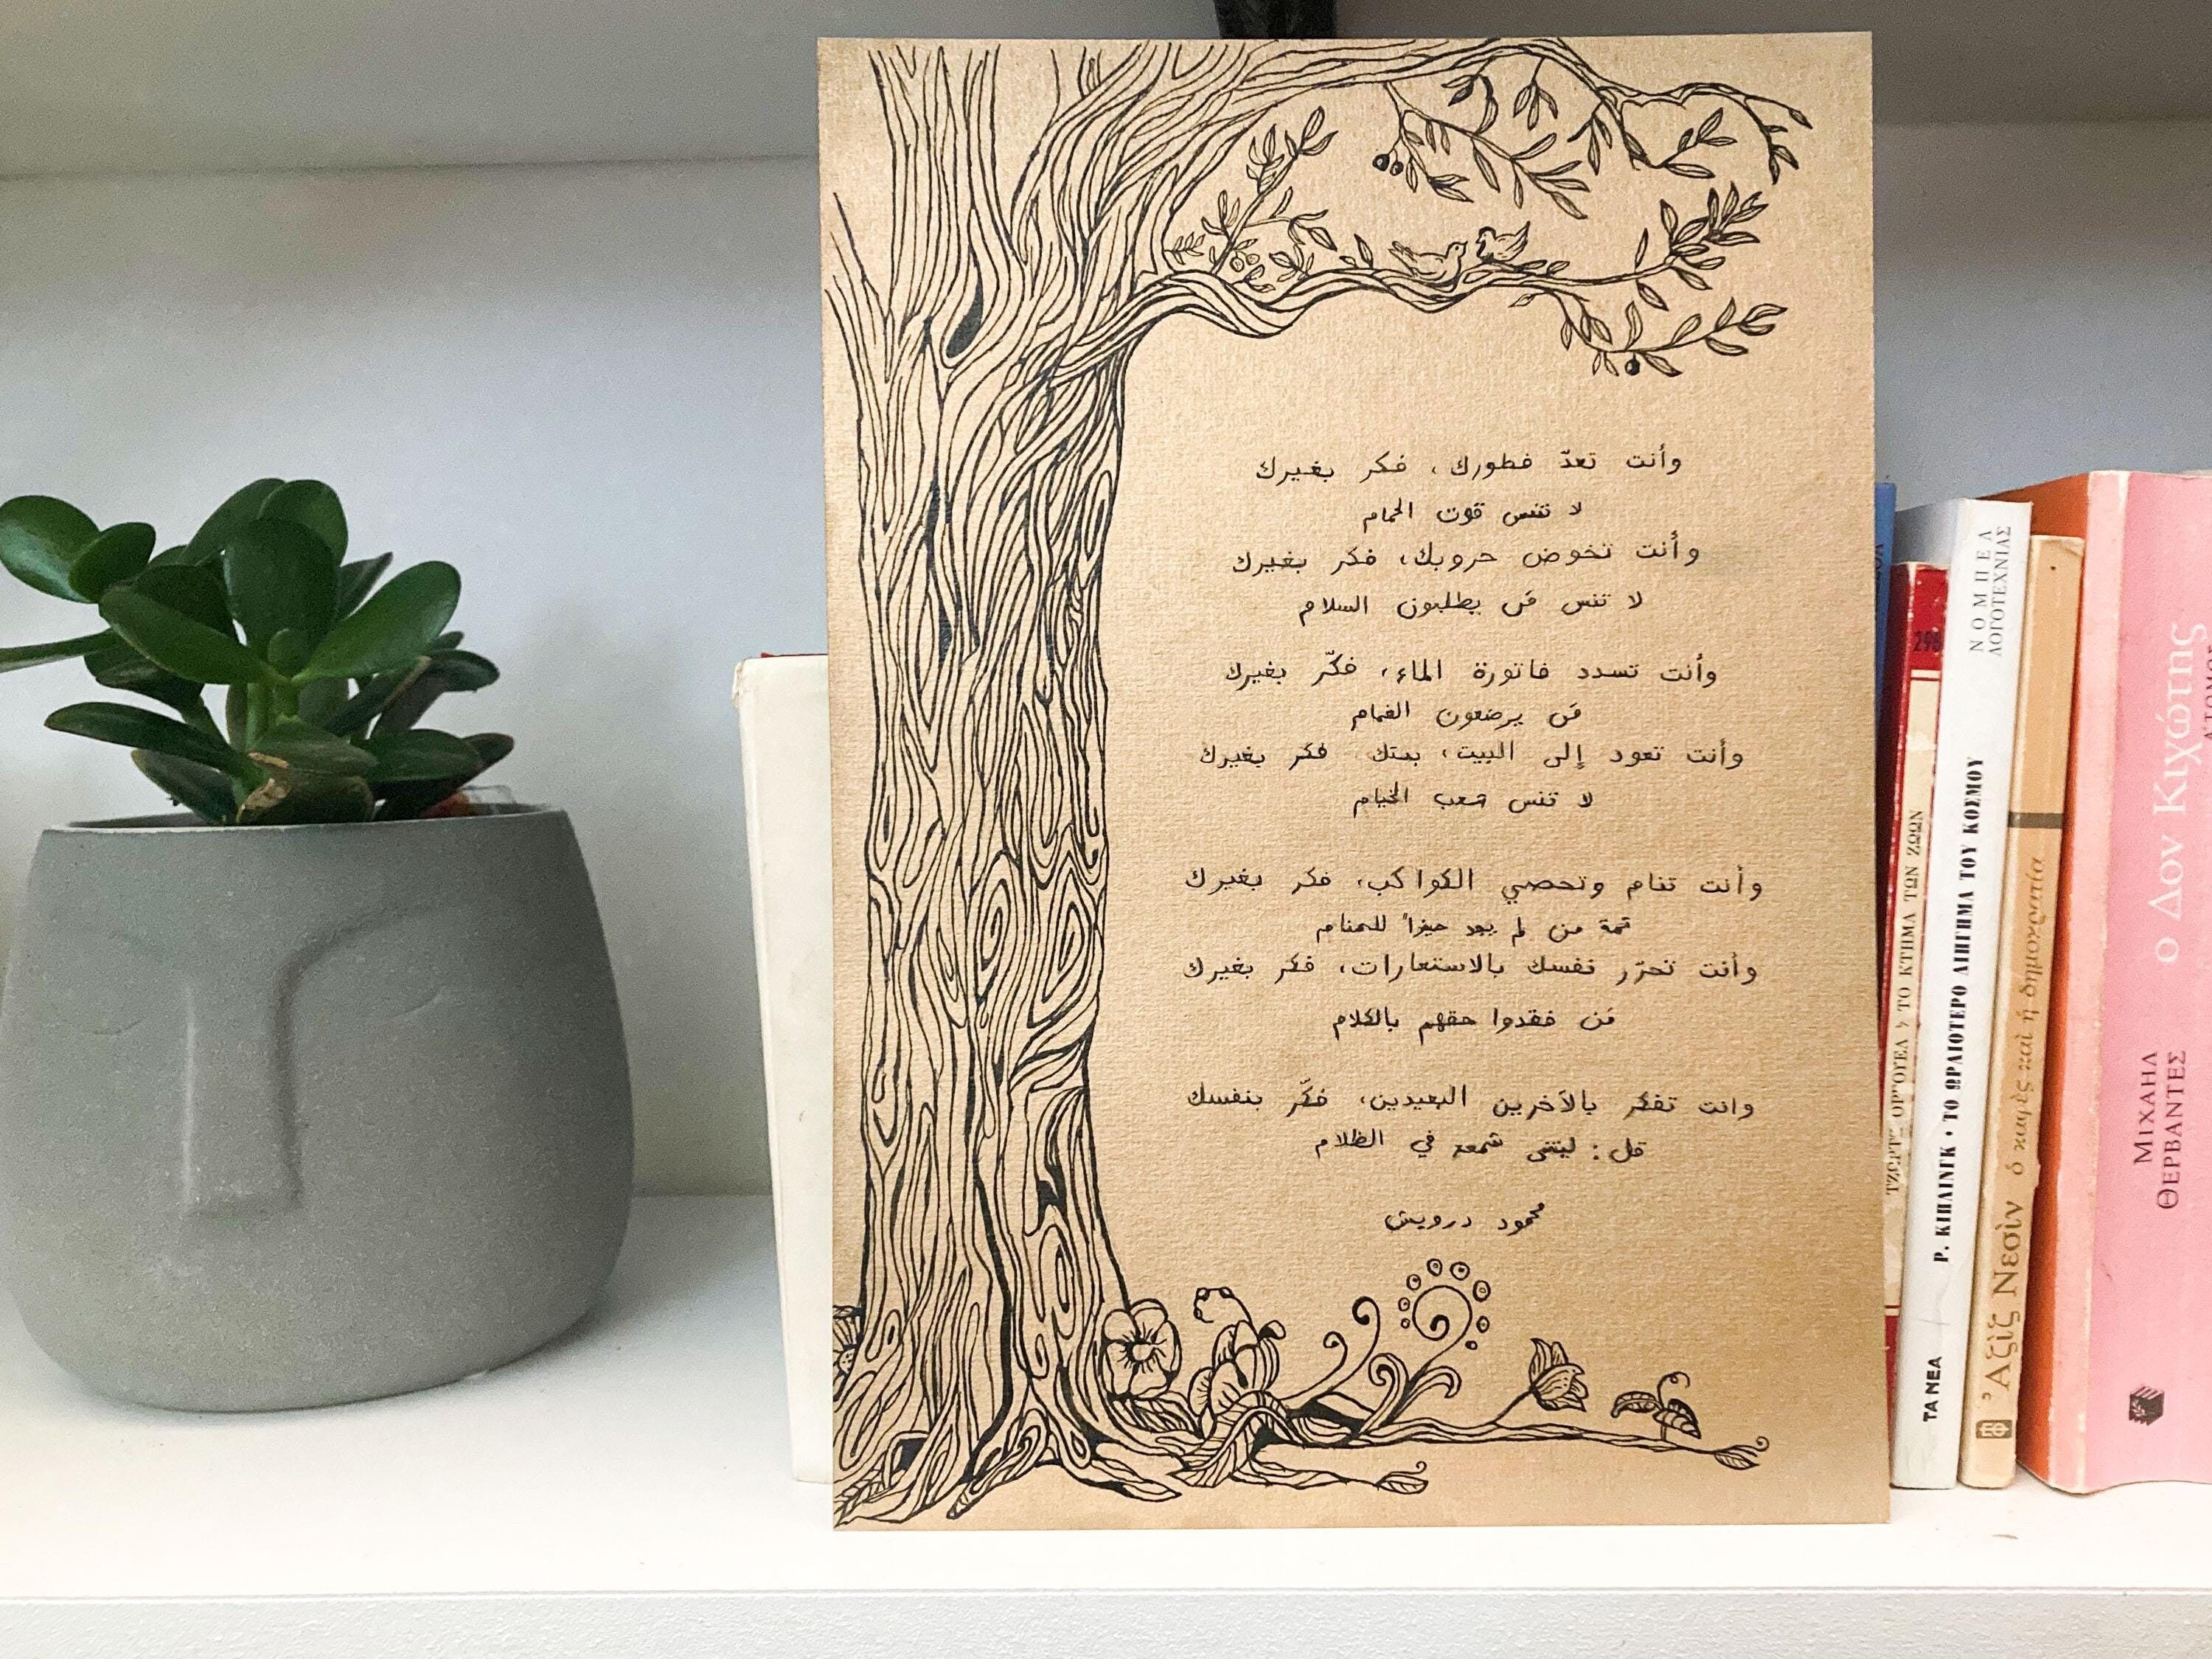 وأنت تعدّ فطورك، فكر بغيرك
لا تنس قوت الحمام
وأنت تخوض حروبك، فكر بغيرك
لا تنس مَن يطلبون السلام
وأنت تسدد فاتورة الماء، فكّر بغيرك
مَن يرضعون الغمام
وأنت تعود إلى البيت، بيتك فكر بغيرك
لا تنس شعب الخيام
وأنت تنام وتحصي الكواكب، فكر بغيرك
ثمة من لم يجد حيزاً للمنام
وأنت تحرّر نفسك بالاستعارات، فكر بغيرك
مَن فقدوا حقهم بالكلام
وانت تفكر بالآخرين البعيدين، فكّر بنفسك
قل: ليتني شمعة في الظلام
محمود درويش
296
ΤΟ ΚΤΗΜΑ ΤΩΝ ΖΩΩΝ
ΝΟΜΠΕΛ
ΛΟΓΟΤΕΧΝΙΑΣ
Ρ. ΚΙΠΛΙΝΓΚ • ΤΟ ΩΡΑΙΟΤΕΡΟ ΔΙΗΓΗΜΑ ΤΟΥ ΚΟΣΜΟΥ
ΤΑ ΝΕΑ
Ἀζὶζ Νεσὶν ὁ καφὲς καὶ ἡ δημοκρατία
ο Δον Κιχώτης
ΜΙΧΑΗΛ
ΘΕΡΒΑΝΤΕΣ